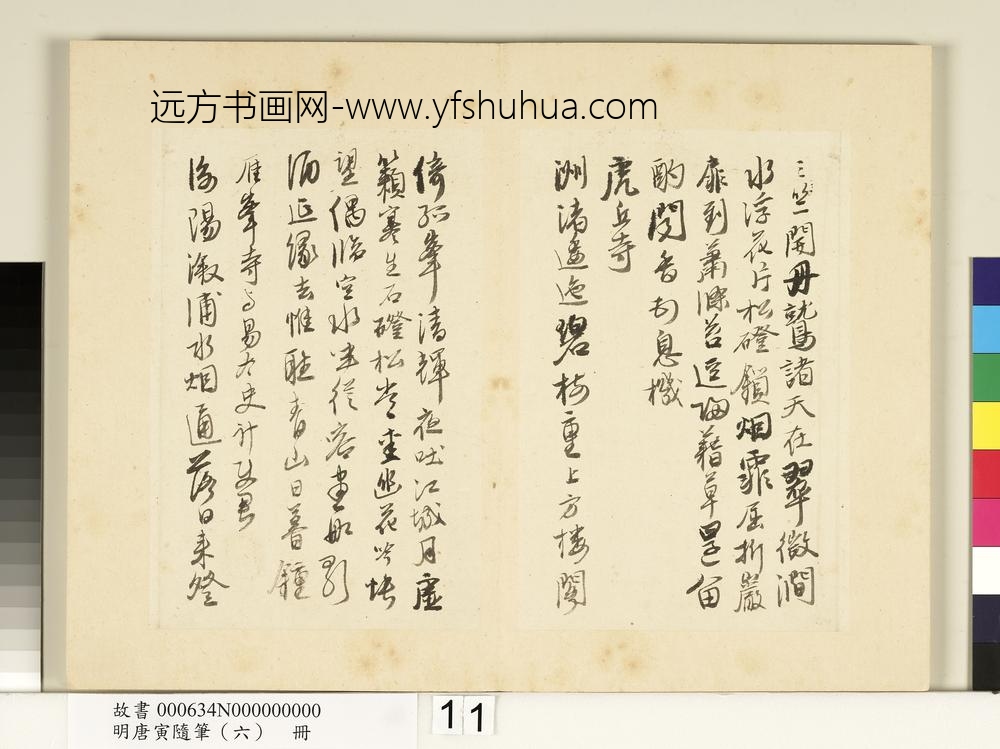 远方书画网-www.yfshuhua.com
三竺開丹鷲諸天在翠微澗
水浮花片松磴鎖烟霏屈折巖
扉到蕭條苔逕歸藉草留
酌聞香息機
虎丘寺
洲渚逶迤碧樹重上方樓閣
倚孤峯清輝夜吐江城月虛
籟寒生石磴松幽花
望偶臨空水坐從容畫船引
酒延緣去惟聽青山日暮鐘
雁峯寺與易太史計
潯陽溆浦水烟通落日來登
故書 000634N000000000
明唐寅隨筆（六） 冊
11